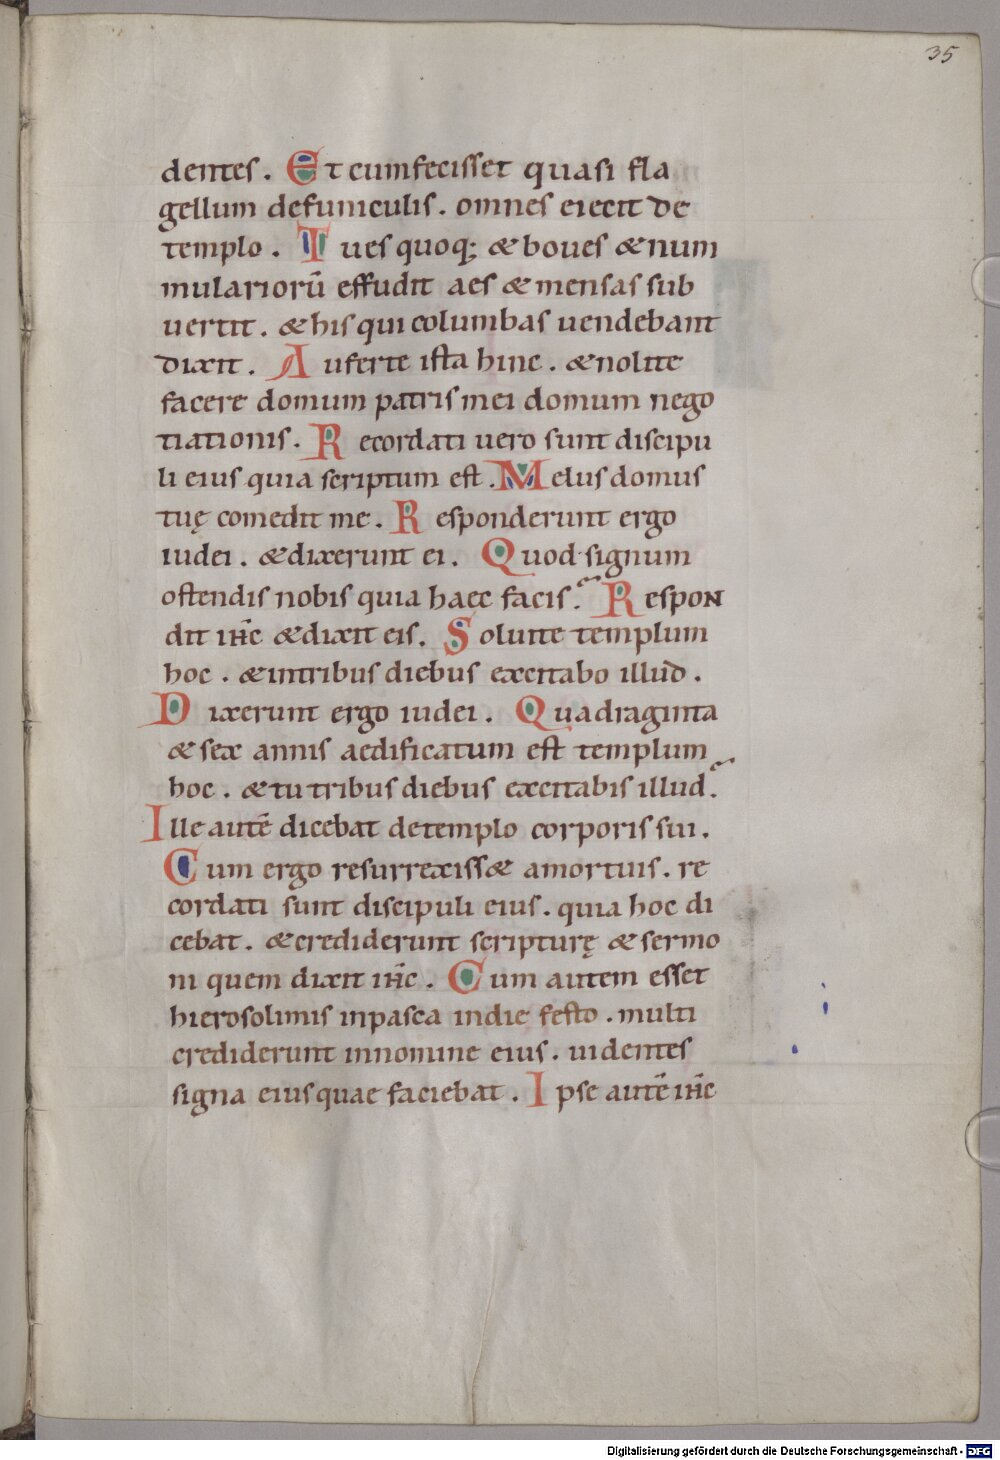 35
dentes. Et cum fecisset quasi fla
gellum de funiculis. omnes eiecit de
templo. I ues quoq; & boues & num
mulariorū effudit aes & mensas sub
uertit. & his qui columbas uendebant
dixit. Auferte ista hinc. & nolite
facere domum patris mei domum nego
tiationis. Recordati uero sunt discipu
li eius quia scriptum est. Melus domus
tuę comedit me. Responderunt ergo
iudei. & dixerunt ei. Quod signum
ostendis nobis quia haec facis? Respon
dit ih̄c & dixit eis. Soluite templum
hoc. & in tribus diebus excitabo illud.
Dixerunt ergo iudei. Quadraginta
& sex annis aedificatum est templum
hoc. & tu tribus diebus excitabis illud?
Ille autē dicebat de templo corporis sui.
Cum ergo resurrexiss& amortuis. re
cordati sunt discipuli eius. quia hoc di
cebat. & crediderunt scripturę & sermo
ni quem dixit ih̄c. Cum autem esset
hierosolimis in pasca in die festo. multi
crediderunt in nomine eius. uidentes
signa eius quae faciebat. Ipse autē ih̄c
Digitalisierung gefördert durch die Deutsche Forschungsgemeinschaft - DFG